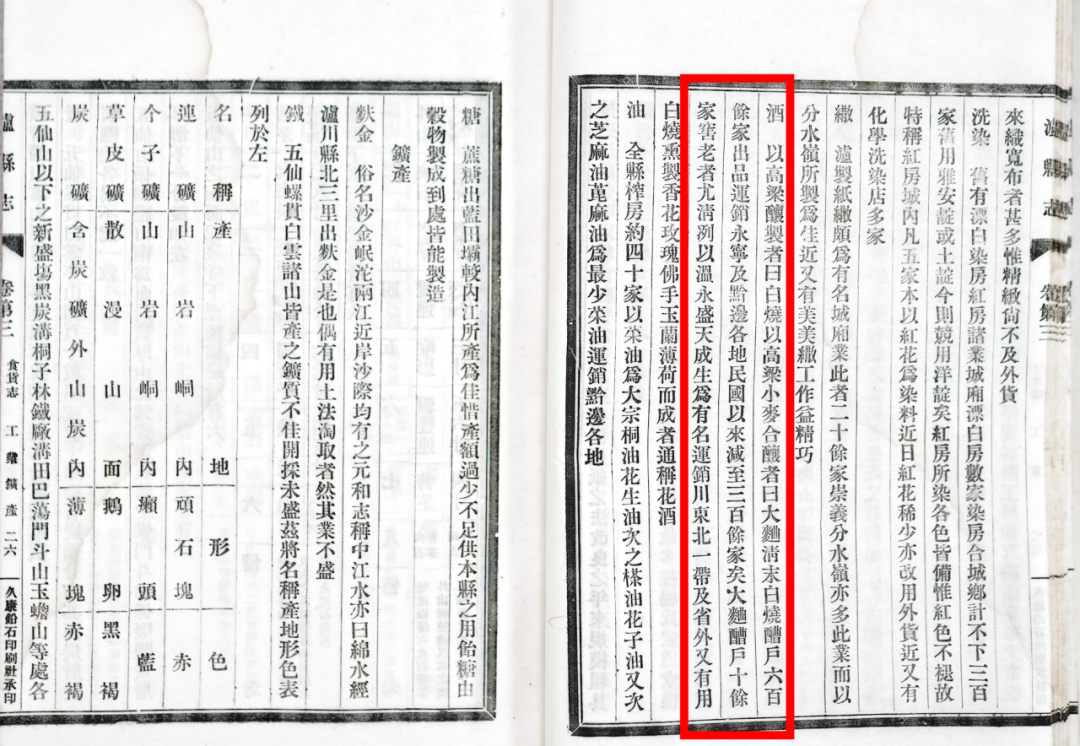 瀘縣志
來織寬布者甚多惟精緻尙不及外貨
洗染 舊有漂白染房紅房諸業城廂漂白房數家染房合城鄉計不下三百
家舊用雅安靛或土靛今則競用洋靛矣紅房所染各色皆備惟紅色不褪故
特稱紅房城內凡五家本以紅花爲染料近日紅花稀少亦改用外貨近又有
化學洗染店多家
繖 瀘製紙繖頗爲有名城廂業此者二十餘家崇義分水嶺亦多此業而以
分水嶺所製爲佳近又有美美繖工作益精巧
酒 以高粱釀製者曰白燒以高粱小麥合釀者曰大麯淸末白燒醩戶六百
餘家出品運銷永寧及黔邊各地民國以來減至三百餘家矣大麯醩戶十餘
家窖老者尤淸洌以溫永盛天成生爲有名運銷川東北一帶及省外又有用
白燒熏製香花玫瑰佛手玉蘭薄荷而成者通稱花酒
油 全縣榨房約四十家以菜油爲大宗桐油花生油次之榛油花子油又次
之芝麻油萞麻油爲最少菜油運銷黔邊各地
糖 蔗糖出藍田壩較內江所產爲佳惜產額過少不足供本縣之用飴糖由
穀物製成到處皆能製造
鑛產
麩金 俗名沙金岷沱兩江近岸沙際均有之元和志稱中江水亦曰綿水經
瀘川縣北三里出麩金是也偶有用土法淘取者然其業不盛
鐵 五仙螺貫白雲諸山皆產之鑛質不佳開採未盛茲將名稱產地形色表
列於左
名稱 產地 形 色
連礦 山岩峒內 頑石塊 赤
今子礦 山岩峒內 癩頭 藍
草皮礦 散漫山面 鵝卵 黑褐
炭礦 含炭礦外山炭內 薄塊 赤褐
五仙山以下之新盛塲黑炭溝桐子林鐵廠溝田巴蕩門斗山玉蟾山等處各
瀘縣志 卷第三 食貨志 工業 鑛產 二六 久康鉛石印刷社承印